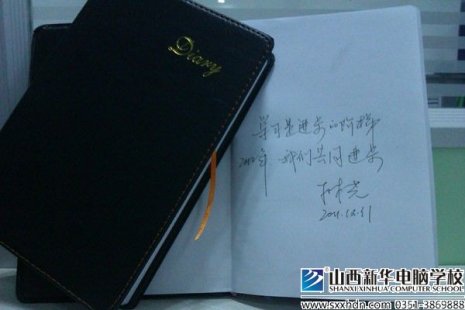 Diary
单月是进步的阶梯
2012年 我们共同进步
2011.12.31
山西新华电脑学校
SHANXI XINHUA COMPUTER SCHOOL
www.sxxhdn.com 0351-3869888